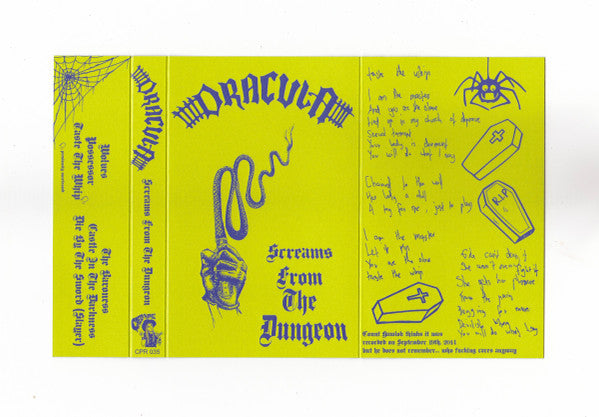 Wolves
Possessor
Taste The Whip
The Baroness
Castle In The Darkness
Die By The Sword (Slayer)
DRACULA
Screams From The Dungeon
CPR 035
DRACULA
Screams
From
The
Dungeon
taste the whip
I am the master
And you are the slave
Tied up in my chamber of
Sexual torment
Your body is
You will do what I say
Chained to the wall
A toy for me, just to play
I am the master
Let it
You are the slave
taste the whip
R.I.P
She can't deny it
She won't even fight it
She gets her pleasure
From the pain
Begging for more
You will do what I say
recorded on September 19th, 2011
but he does not remember... who fucking cares anyway